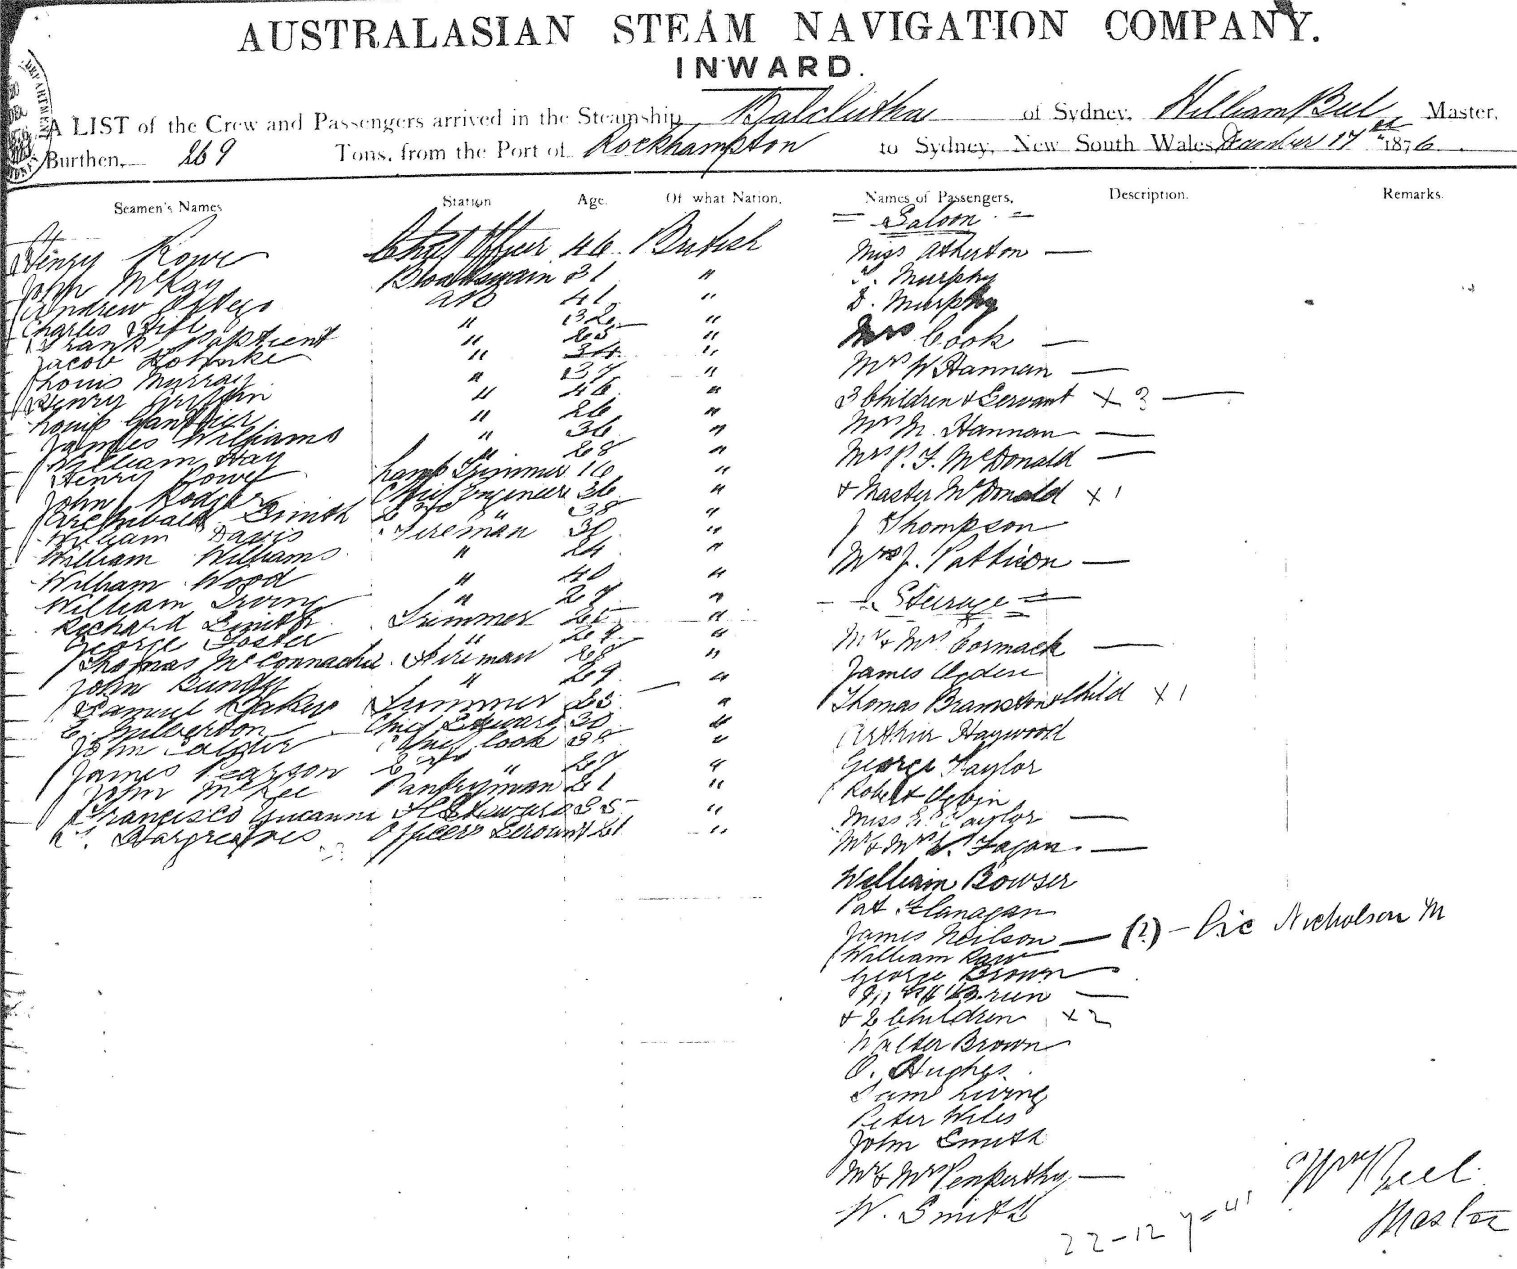 AUSTRALASIAN STEAM NAVIGATION COMPANY.
INWARD.
A LIST of the Crew and Passengers arrived in the Steamship Balclutha of Sydney, William Beel Master,
Burthen, 269 Tons, from the Port of Rockhampton to Sydney, New South Wales, December 17 1876
Seamen's Names Station Age. Of what Nation.
Henry Rowe Chief Officer 46 British
John McKay Boatswain 31 "
Andrew AB 41 "
Charles " 32 "
Frank " 25 "
Jacob " 34 "
Louis Murray " 37 "
Henry " 46 "
Louis Gauthier " 26 "
James Williams " 36 "
William Hay " 28 "
Henry Rowe Lamp Trimmer 16 "
John Rodger Chief Engineer 36 "
Archibald Smith 2 do " 38 "
William Davis Fireman 30 "
William Williams " 24 "
William Wood " 40 "
William Irving " 27 "
Richard Smith Trimmer 25 "
George Foster " 29 "
Thomas McConnachie Fireman 28 "
John Bundy " 29 "
Samuel Baker Trimmer 23 "
E. Milberton Chief Steward 30 "
John Calder Chief Cook 38 "
James Pearson 2 do " 27 "
John McKee Pantryman 21 "
Francisco Steward 25 "
Hargreaves Officers Servant 21 "
Names of Passengers, Description. Remarks.
= Saloon =
Miss Atherton —
T. Murphy
D. Murphy
Mrs Cook —
Mrs W Hannan —
3 Children & Servant x 3 —
Mrs M. Hannan —
Mrs P. F. McDonald —
& Master McDonald x 1
J Thompson
Mrs J. Pattison —
Steerage =
Mr & Mrs Cormack —
James Ogden
Thomas Bramston & Child x 1
Arthur Haywood
George Taylor
Robert
Miss E. Taylor —
Mr & Mrs Fagan. —
William Bowser
Pat Flanagan
James Neilson — (?) - Nicholson M
William Raw
George Brown
—
& 2 Children x 2
Walter Brown
O. Hughes
Sam Living
Peter Wiles
John Smith
Mr & Mrs Penperthy —
W. Smith
22-12 y = 41
Wm Beel
Master